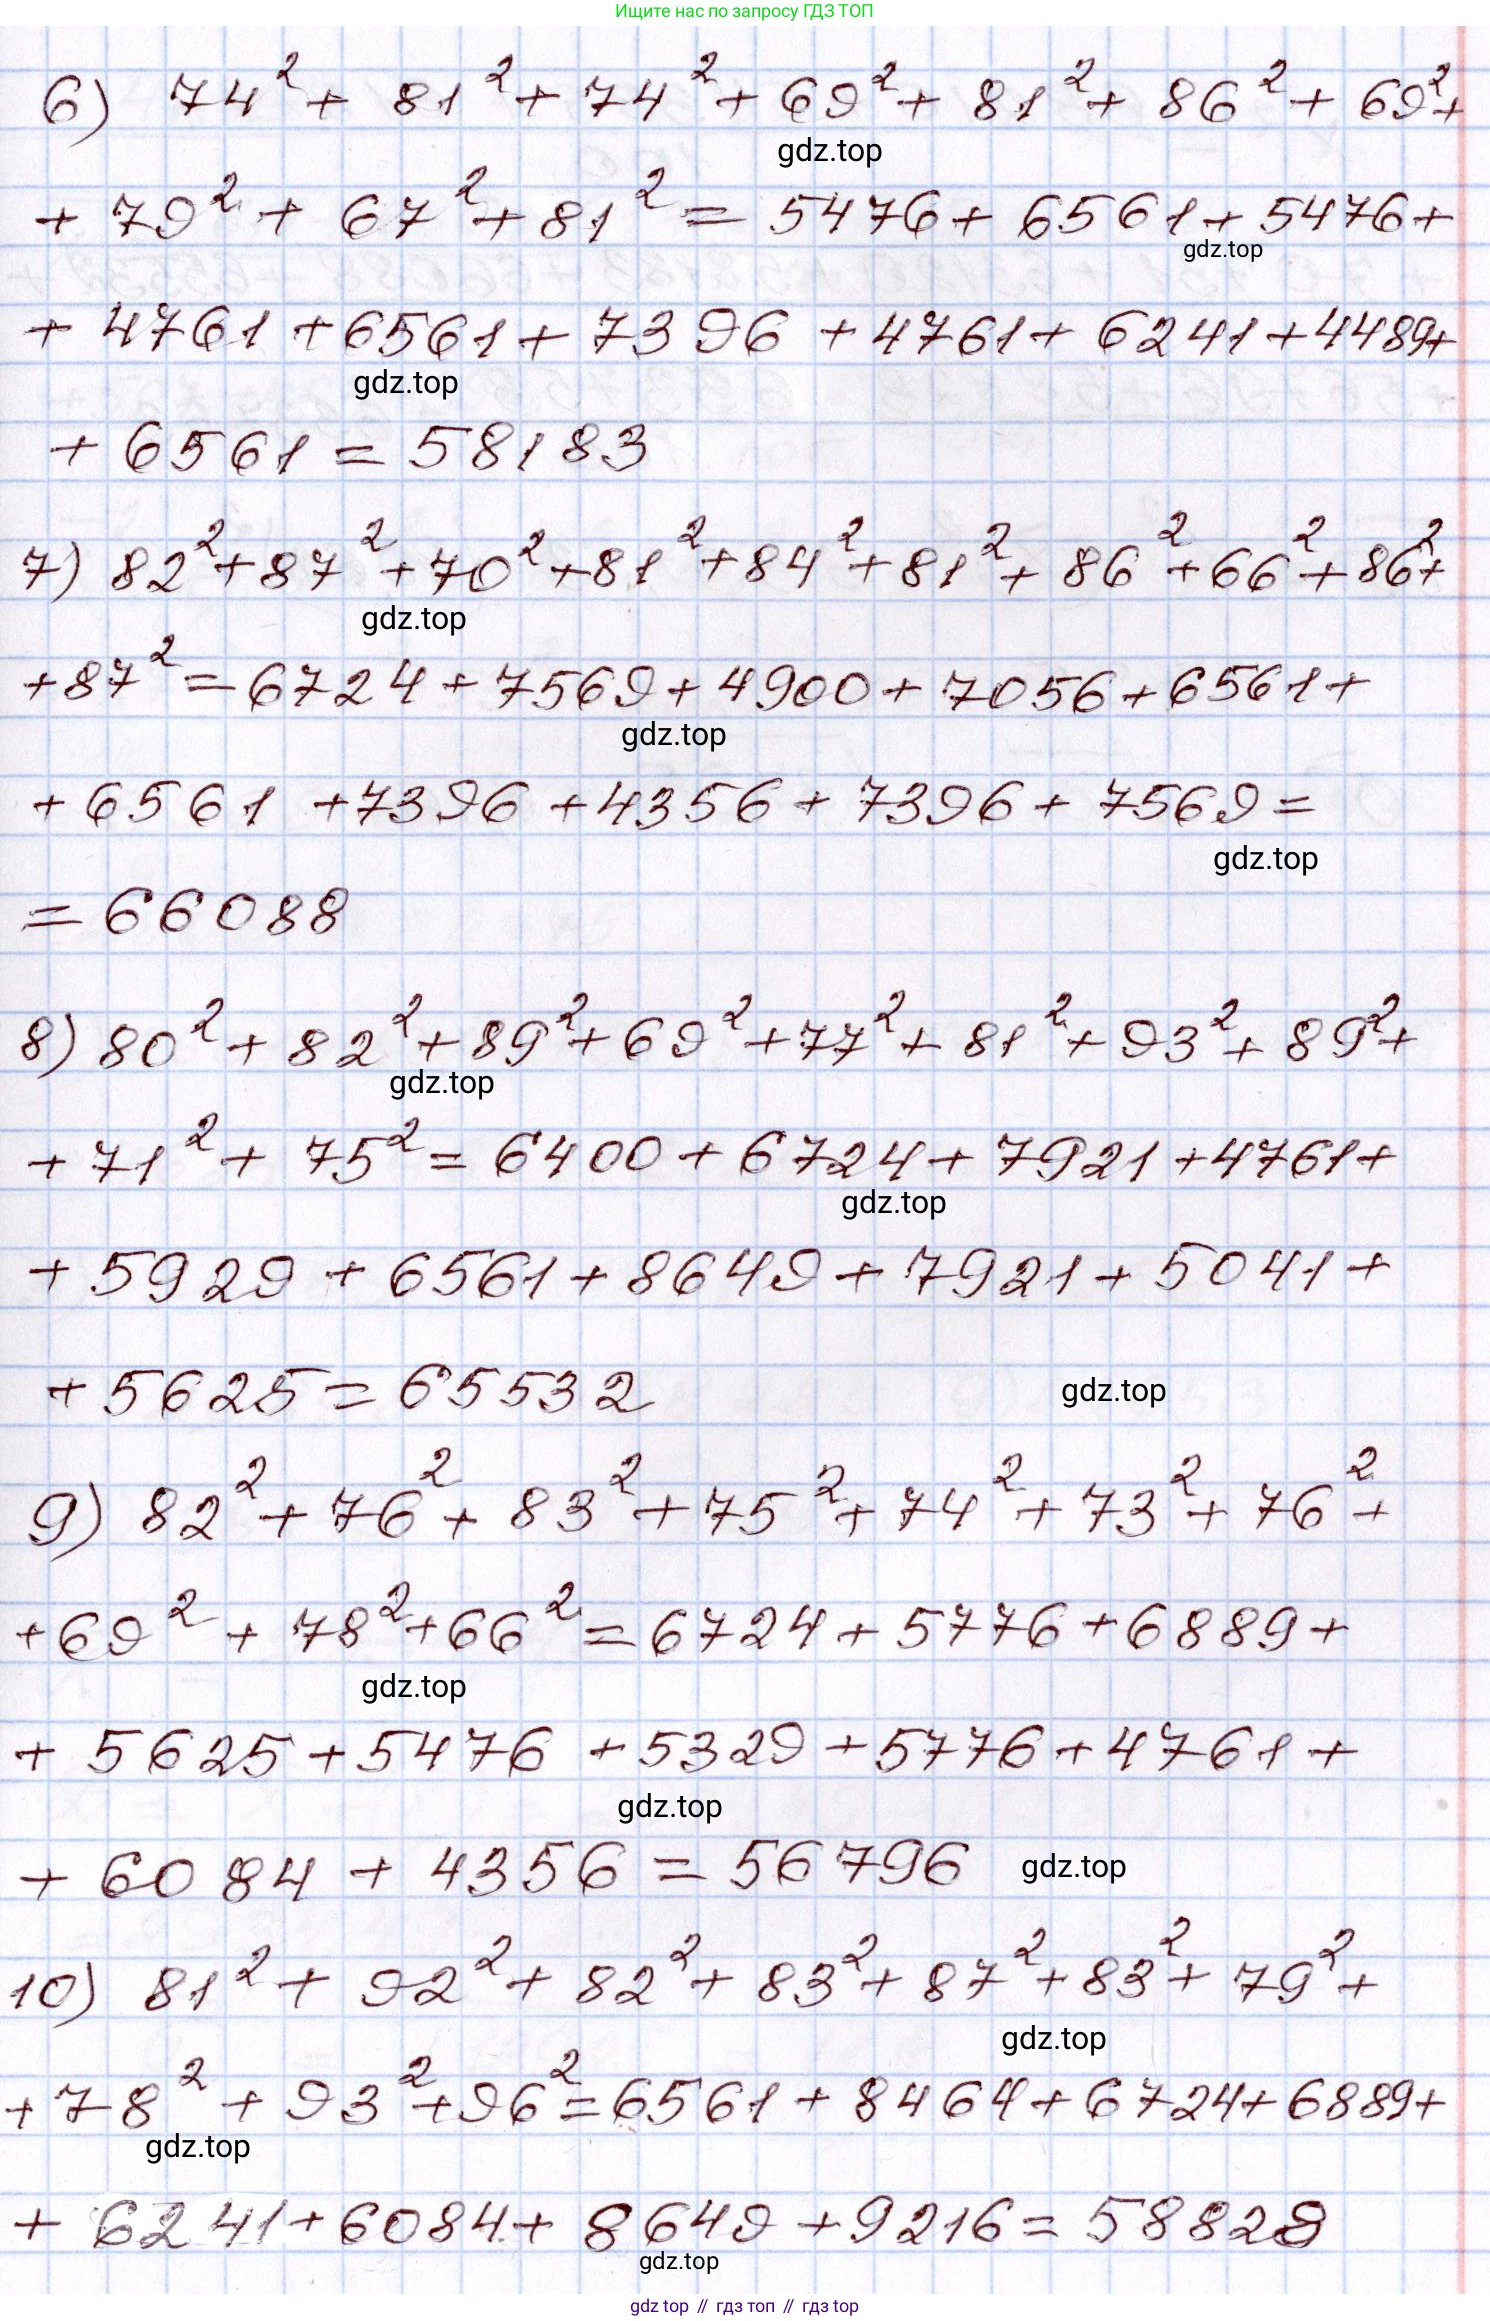 Ищите нас по запросу ГДЗ ТОП
6) 74² + 81² + 74² + 69² + 81² + 86² + 69² +
gdz.top
+ 79² + 67² + 81² = 5476 + 6561 + 5476 +
gdz.top
+ 4761 + 6561 + 7396 + 4761 + 6241 + 4489 +
gdz.top
+ 6561 = 58183
7) 82² + 87² + 70² + 81² + 84² + 81² + 86² + 66² + 86² +
gdz.top
+ 87² = 6724 + 7569 + 4900 + 7056 + 6561 +
gdz.top
+ 6561 + 7396 + 4356 + 7396 + 7569 =
gdz.top
= 66088
8) 80² + 82² + 89² + 69² + 77² + 81² + 93² + 89² +
gdz.top
+ 71² + 75² = 6400 + 6724 + 7921 + 4761 +
gdz.top
+ 5929 + 6561 + 8649 + 7921 + 5041 +
+ 5625 = 65532
gdz.top
9) 82² + 76² + 83² + 75² + 74² + 73² + 76² +
+ 69² + 78² + 66² = 6724 + 5776 + 6889 +
gdz.top
+ 5625 + 5476 + 5329 + 5776 + 4761 +
gdz.top
+ 6084 + 4356 = 56796
gdz.top
10) 81² + 92² + 82² + 83² + 87² + 83² + 79² +
gdz.top
+ 78² + 93² + 96² = 6561 + 8464 + 6724 + 6889 +
gdz.top
+ 6241 + 6084 + 8649 + 9216 = 58828
gdz.top
gdz top // гдз топ // гдз top